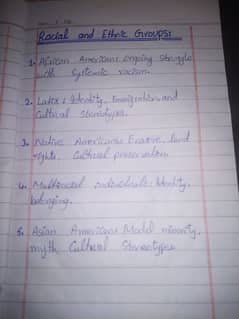 Racial and Ethnic Groups:
1. African Americans ongoing Struggle
with Systemic racism.
2. Latex: Identity, Immigration and
Cultural Stereotypes.
3. Native Americans Erasure, land
rights, Cultural preservation.
4. Multiracial individuals: Identity,
belonging.
5. Asian Americans Model minority,
myth Cultural Stereotypes